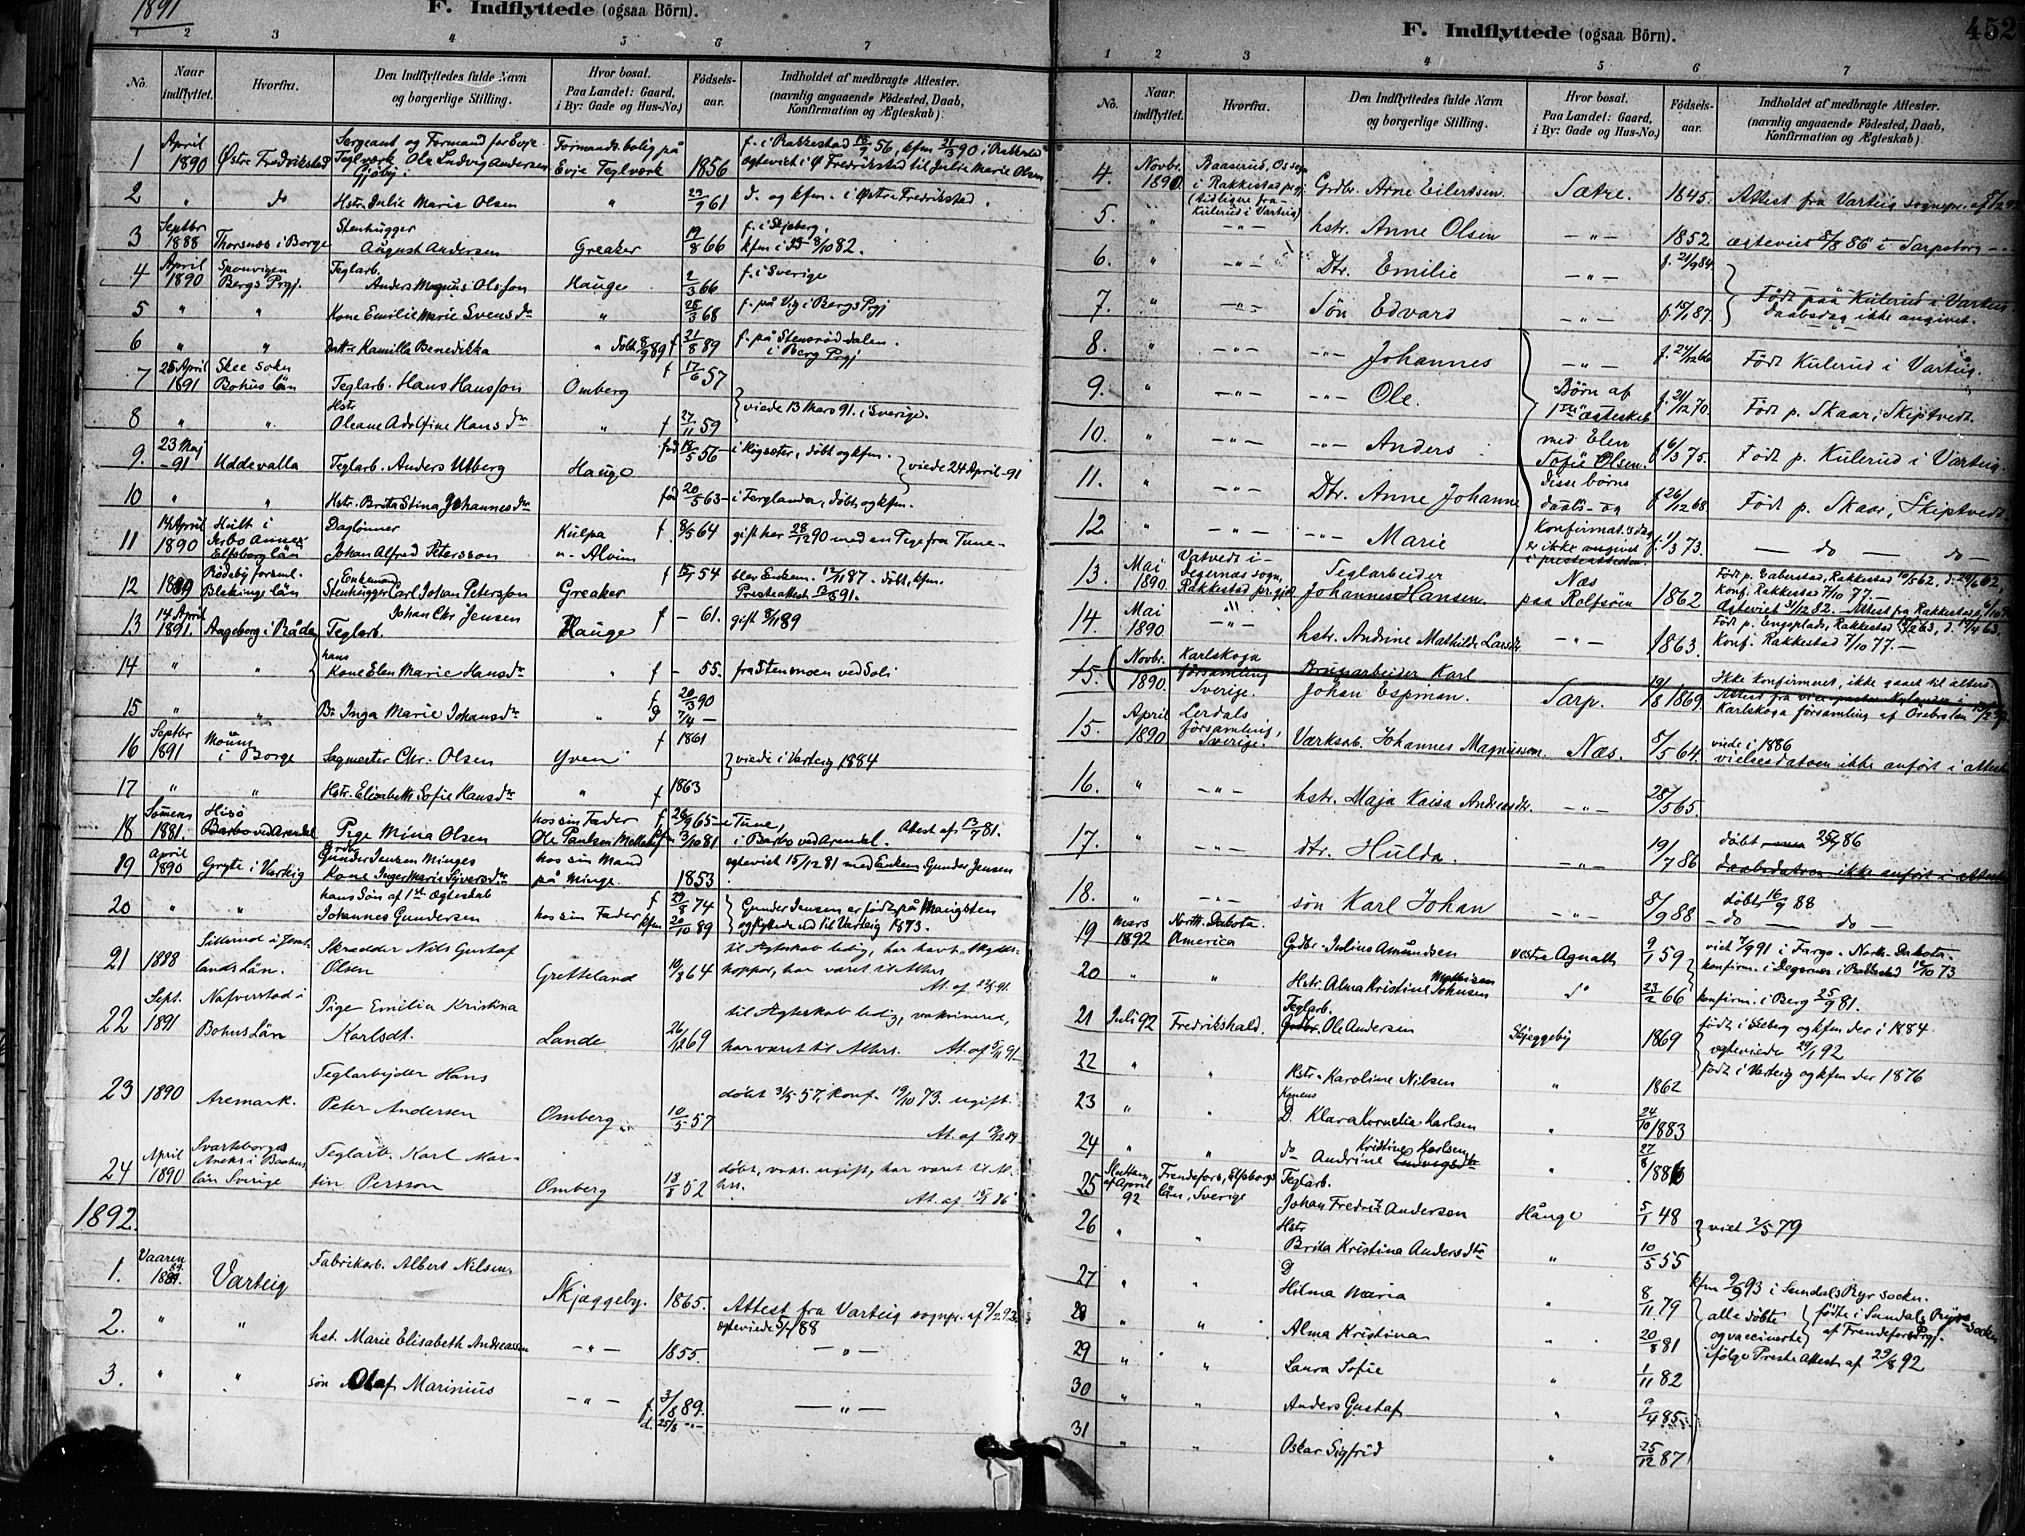 1891
F. Indflyttede (ogsaa Börn).
1 2 3 4 5 6 7
No. Naar indflyttet. Hvorfra. Den Indflyttedes fulde Navn og borgerlige Stilling. Hvor bosat. Paa Landet: Gaard, i By: Gade og Hus-No.) Födsels-aar. Indholdet af medbragte Attester. (navnlig angaaende Födested, Daab, Konfirmation og Ægteskab).
1 April 1890 Østre Fredrikstad Sergeant og Formand for Evje Teglværk Ole Ludvig Andersen Gjöby. Formandsbolig på Evje Teglværk 1856 f. i Rakkestad 56, kfm 90 i Rakkestad
egteviet i Ø Fredrikstad til Julie Marie Olsen
2 " do Hstr. Julie Marie Olsen " 61 d. og kfm. i Østre Fredrikstad.
3 Septbr 1888 Thorsnæs i Borge Stenhugger August Andersen Greaker 19/8 66 f. i Skjeberg. kfm i do 8/10 82.
4 April 1890 Sponvigen Bergs Prgj. Teglarb. Anders Magnus Olsson Hauge 2/3 66 f. i Sverige
5 " " Kone Emilie Marie Svensdr " 25/3 68 f. på Vig i Bergs Prgj
6 " " Datter Kamilla Benedikka " Döbt 8/9 89 f 21/8 89 f. på Stensrød-dalen i Berg Prgj
7 25 April 1891 Skee sokn Bohus län Teglarb. Hans Hansson Omberg f 17/6 57
8 " " Hstr Oleane Adolfine Hansdr " f 27/11 59 viede 13 Mars 91. i Sverige.
9. 23 Maj -91 Uddevalla Teglarb. Anders Utberg Hauge fød 18/5 56 döbt og kfm. viede 24 April -91
10 " " Hstr. Brita Stina Johannesdr fød 20/5 63 i Ferglanda, döbt og kfm.
11 14 April 1890 Hult i Annex Elfsborg län Daglönner Johan Alfred Petersson Kulpa u. Alvim f 8/5 64 gift her 28/12 90 med en Pige fra Tune
12 1889 Rödeby forsml. Blekinge län Enkemand Stenhugger Carl Johan Petersson Greaker f 15/1 54 blev Enkem. 12/11 87. döbt, kfm. Presteattest 91.
13 14 April 1891. Aageborg i Råde Johan Chr Jensen Teglarb. Hauge f - 61. gift 8/11 89
14 " " hans Kone Elen Marie Hansdr " f - 55. fra Stensmoen ved Soli
15 " " Br Inga Marie Johansdr " f 20/3 90 d 7/4 -
16 Septbr 1891 Moum i Borge Sagmester Chr. Olsen Yven f 1861 viede i Varteig 1884
17 " " Hstr. Elisabeth Sofie Hansdr " f 1863
18 Somren 1881. Hisö Barbo ved Arendal Pige Mina Olsen hos sin Fader Ole Paulsen f 65 i Tune, kfm 2/10 81 i Barbo ved Arendal. Attest af 13/7 81.
19 April 1890 Gryte i Varteig Grdbr Gunder Jensen Minges Kone Inger Marie Syversdr hos sin Mand på Minge. 1853 egteviet 15/12 81 med Enkem Gunder Jensen
20 " " hans Sön af 1st Ægteskab Johannes Gundersen hos sin Fader f 29/8 74 kfm 20/10 89 Gunder Jensen er födt på Maugsten og flyttede ud til Varteig 1873.
21 1888 Sillerud i Jemtlands Län. Skrædder Nils Gustaf Olsen Gretteland 64 til Ægteskab ledig, har havt Skyddskoppor, har været til Alters At. af 91.
22 Sept. 1891 Nafverstad i Bohus Län Pige Emilia Kristina Karlsdt. Lande 26/12 69 til Ægteskab ledig, vakcinered, har været til Altrs. At. af 9/11 91
23 1890 Aremark. Teglarbejder Hans Peter Andersen Omberg. 10/5 57 döbt 31/5 57, konf. 19/10 73. ugift. At. af 89
24 April 1890 Svarteborgs Aneks i Baahus län Sverige Teglarb. Karl Martin Persson Omberg 13/8 52 döbt, vakc. ugift, har været til Altrs. At. af 15/9 86
1892.
1. Vaaren 1889. Varteig Fabrikarb. Albert Nilsen. Skjæggeby. 1865. Attest fra Varteig sognpr. af 9/2 93
2. " " hst. Marie Elisabeth Andreassen - " - 1855. egteviede 5/4 88 - " -
3. " " sön Olaf Marinius - " - f. 3/8 89. d. 25/8 -"- - " -
F. Indflyttede (ogsaa Börn).
452
1 2 3 4 5 6 7
No. Naar indflyttet. Hvorfra. Den Indflyttedes fulde Navn og borgerlige Stilling. Hvor bosat. Paa Landet: Gaard, i By: Gade og Hus-No.) Födsels-aar. Indholdet af medbragte Attester. (navnlig angaaende Födested, Daab, Konfirmation og Ægteskab).
4. Novbr. 1890. Baaserud, Os sogn i Rakkestad prgj. (tidligere fra Kulerud i Varteig) Grdbr. Arne Eilertsen. Sætre. 1845. Attest fra Varteig sognepr. af
5. " - " - hstr. Anne Olsen - " - 1852 ægteviet 8/8 86 i Sarpsborg
6. " - " - Dtr. Emilie - " - f. 21/9 84.
7. " - " - Sön Edvard - " - f. 15/1 87. Födt paa Kulerud i Varteig. Daabsdag ikke angivet.
8. " - " - - " - Johannes - " - f. 24/12 66 Födt Kulerud i Varteig.
9. " - " - - " - Ole. Børn af 1ste ægteskab f. 21/12 70. Födt p. Skaar, Skiptvedt.
10. " - " - - " - Anders. med Elen Sofie Olsen. f. 6/3 75. Födt p. Kulerud i Varteig.
11. " - " - Dtr. Anne Johanne disse börns daabs- og f. 26/12 68. Födt p. Skaar, Skiptvedt
12 " - " - - " - Marie Konfirmat.sdag er ikke angivet i presteattesten f. 1/3 73. - do - do -
13. Mai 1890. Vatvedt i Degernæs sogn, Rakkestad pr.gjd. Teglarbeider Johannes Hansen. Næs paa Rolfsøen 1862 Födt p. Gaberstad, Rakkestad 19/5 62, d. 29/6 62, Konf. Rakkestad 7/10 77. - Ægteviet 31/12 82. - Attest fra Rakkestad
14. Mai 1890 - " - hstr. Andrine Mathilde Larsdtr. - " - 1863. Födt p. Engsplads, Rakkestad 63, d. 19/4 63. Konf. Rakkestad 7/10 77. -
15. Novbr. 1890. Karlskoga församling Sverige. Brugarbeider Karl Johan Espman. Sarp. 19/8 1869 Ikke konfirmeret, ikke gaaet til alters. Attest fra Karlskoga församling af Örebro län
15. April 1890 Lerdals församling, Sverige. Værksarb. Johannes Magnusson. Næs. 8/5 64. viede i 1886 vielsesdatoen ikke anfört i attesten
16. " - " - hstr. Maja Kaisa Andreasdtr. - " - 28/5 65.
17. " - " - dtr. Hulda. - " - 19/7 86 döbt 25/7 86 daabsdatoen ikke anfört i attesten
18. " - " - sön Karl Johan - " - 8/9 88 döbt 16/9 88 - do - do -
19 Mars 1892 North Dakota America Grdbr. Julius Amundsen vestre Agnalt 9/1 59 viet 7/9 91 i Fargo - North Dakota. konfirm. i Degernes i Rakkestad 12/10 73
20 " " Hstr. Alma Kristine Mathisen Johnsen do 23/2 66 konfirm. i Berg 25/9 81.
21 Juli 92 Fredrikshald. Teglarb. Grdbr. Ole Andersen Skjeggeby 1869 födt i Skeberg og kfm der i 1884. egteviede 29/1 92
22 " " Hstr. Karoline Nilsen " 1862 födt i Varteig og kfm der 1876
23 " " Konens D. Klara Kornelia Karlsen " 24/10 1883
24 " " do Andrine Kristine Karlsen Ludvigsdtr " 27/8 1886
25 Slutten af April 92 Frendefors, Elfsborgs län, Sverige Teglarb. Johan Fredrik Andersen Hånge 5/1 48
26 " " Hstr Brita Kristina Andersdtr " 10/5 55 viet 2/5 79
27 " " D Hilma Maria " 8/11 79 kfm 2/9 93 i Sundals Ryr socken.
28 " " Alma Kristina " 20/8 81 alle döbte og vaccinerte födte i Sundals Ryrs socken af Frendefors Prgj.
29 " " Laura Sofie " 1/11 82 ifölge Preste Attest af 29/8 92
30 " " Anders Gustaf " 9/4 85
31 " " Oskar Sigfrid " 25/12 87